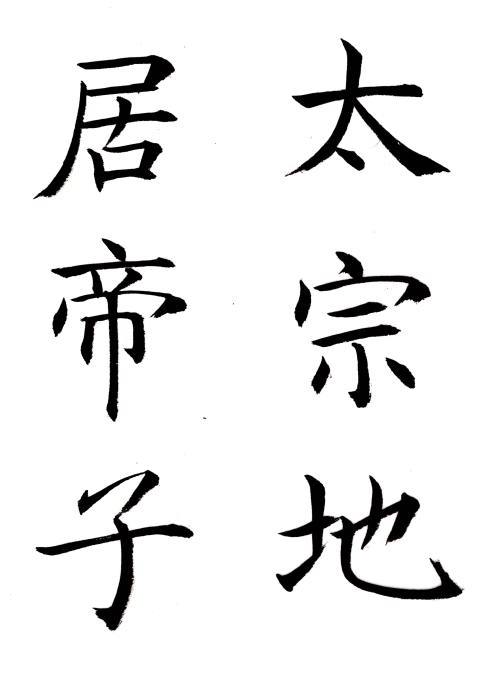 太宗地
居帝子